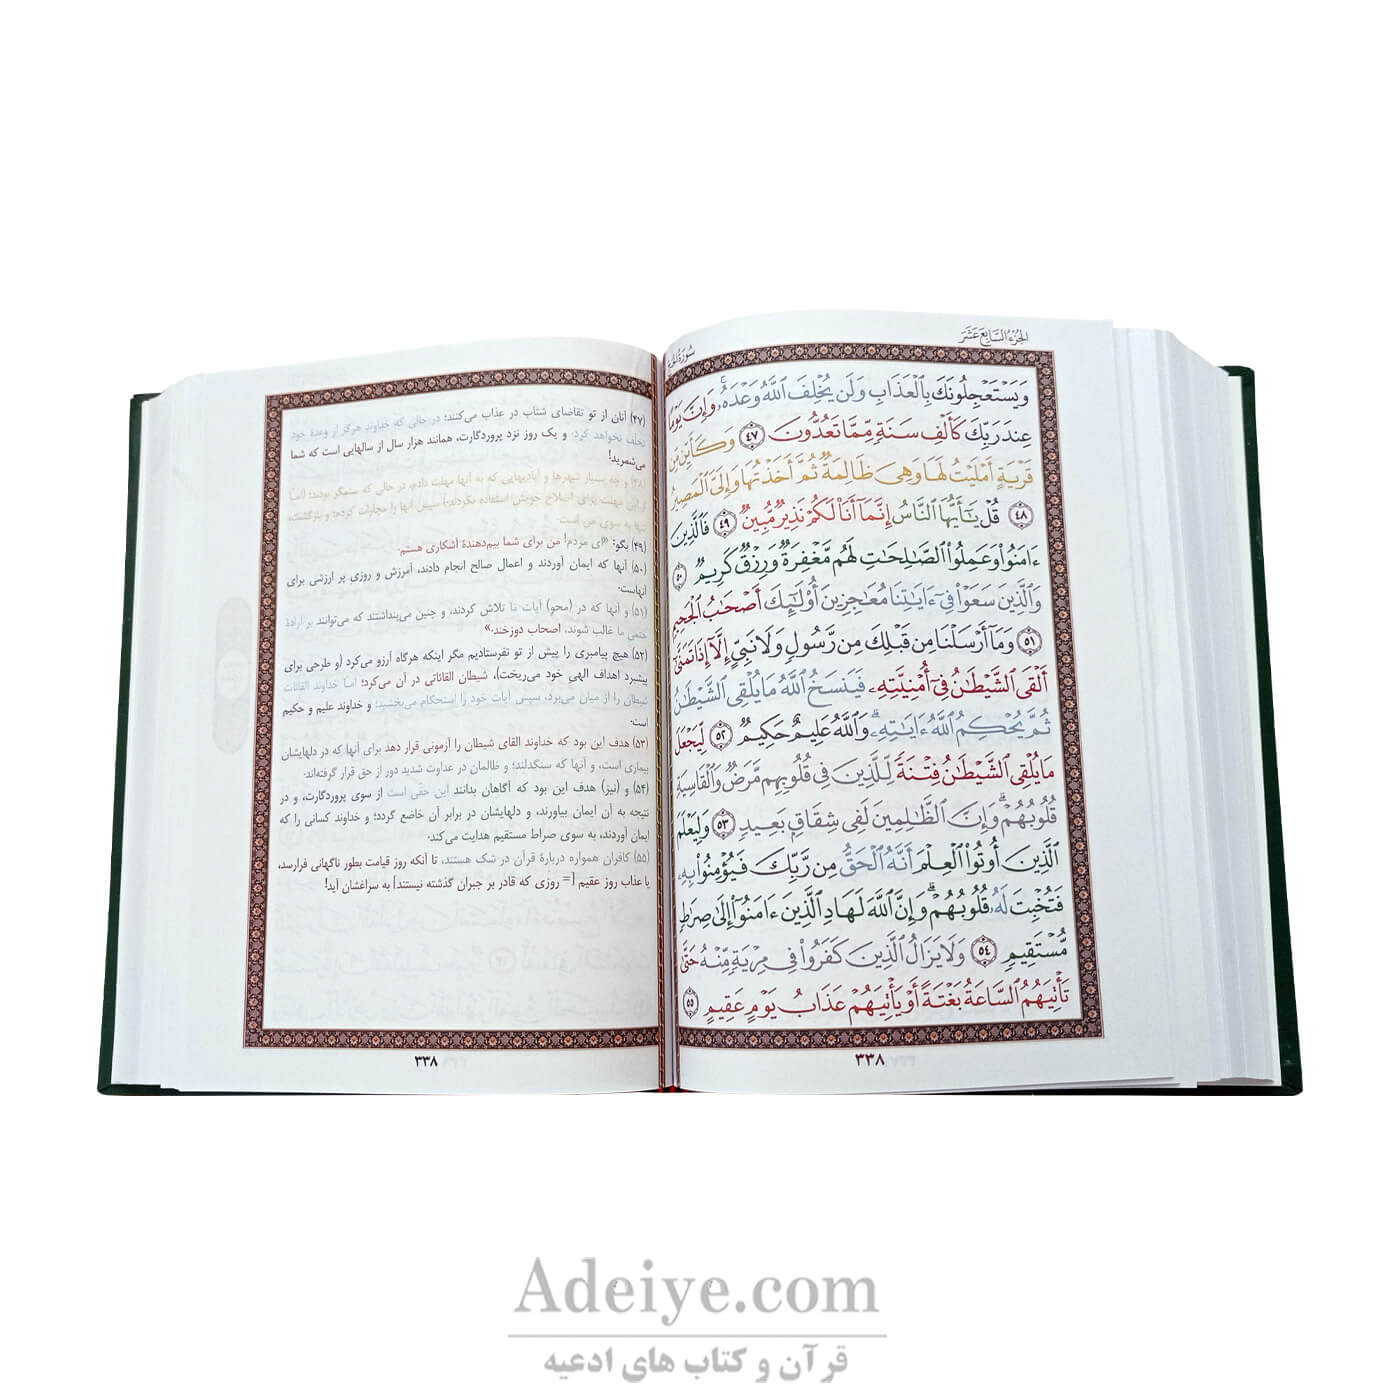 الجزء السابع عشر
سورة الحج
وَيَسْتَعْجِلُونَكَ بِالْعَذَابِ وَلَن يُخْلِفَ اللَّهُ وَعْدَهُ ۚ وَإِنَّ يَوْمًا
عِندَ رَبِّكَ كَأَلْفِ سَنَةٍ مِّمَّا تَعُدُّونَ ٤٧ وَكَأَيِّن مِّن
قَرْيَةٍ أَمْلَيْتُ لَهَا وَهِيَ ظَالِمَةٌ ثُمَّ أَخَذْتُهَا وَإِلَيَّ الْمَصِيرُ
٤٨ قُلْ يَٰٓأَيُّهَا النَّاسُ إِنَّمَا أَنَا لَكُمْ نَذِيرٌ مُّبِينٌ ٤٩ فَالَّذِينَ
ءَامَنُوا وَعَمِلُوا الصَّالِحَاتِ لَهُم مَّغْفِرَةٌ وَرِزْقٌ كَرِيمٌ ٥٠
وَالَّذِينَ سَعَوْا فِي ءَايَاتِنَا مُعَاجِزِينَ أُولَٰئِكَ أَصْحَابُ الْجَحِيمِ
٥١ وَمَا أَرْسَلْنَا مِن قَبْلِكَ مِن رَّسُولٍ وَلَا نَبِيٍّ إِلَّا إِذَا تَمَنَّىٰ
أَلْقَى الشَّيْطَٰنُ فِي أُمْنِيَّتِهِ فَيَنسَخُ اللَّهُ مَا يُلْقِي الشَّيْطَٰنُ
ثُمَّ يُحْكِمُ اللَّهُ ءَايَاتِهِ ۗ وَاللَّهُ عَلِيمٌ حَكِيمٌ ٥٢ لِّيَجْعَلَ
مَا يُلْقِي الشَّيْطَٰنُ فِتْنَةً لِّلَّذِينَ فِي قُلُوبِهِم مَّرَضٌ وَالْقَاسِيَةِ
قُلُوبُهُمْ ۗ وَإِنَّ الظَّالِمِينَ لَفِي شِقَاقٍ بَعِيدٍ ٥٣ وَلِيَعْلَمَ
الَّذِينَ أُوتُوا الْعِلْمَ أَنَّهُ الْحَقُّ مِن رَّبِّكَ فَيُؤْمِنُوا بِهِ
فَتُخْبِتَ لَهُ قُلُوبُهُمْ ۗ وَإِنَّ اللَّهَ لَهَادِ الَّذِينَ ءَامَنُوا إِلَىٰ صِرَٰطٍ
مُّسْتَقِيمٍ ٥٤ وَلَا يَزَالُ الَّذِينَ كَفَرُوا فِي مِرْيَةٍ مِّنْهُ حَتَّىٰ
تَأْتِيَهُمُ السَّاعَةُ بَغْتَةً أَوْ يَأْتِيَهُمْ عَذَابُ يَوْمٍ عَقِيمٍ ٥٥
٣٣٨
(۴۷) آنان از تو تقاضای شتاب در عذاب می‌کنند؛ در حالی که خداوند هرگز از وعدهٔ خود
تخلف نخواهد کرد؛ و یک روز نزد پروردگارت، همانند هزار سال از سالهایی است که شما
می‌شمرید!
(۴۸) و چه بسیار شهرها و آبادیهایی که به آنها مهلت دادم، در حالی که ستمگر بودند؛ (اما
از این مهلت برای اصلاح خویش استفاده نکردند.) سپس آنها را مجازات کردم؛ و بازگشت،
تنها به سوی من است.
(۴۹) بگو: «ای مردم! من برای شما بیم‌دهندهٔ آشکاری هستم.
(۵۰) آنها که ایمان آوردند و اعمال صالح انجام دادند، آمرزش و روزی پر ارزشی برای
آنهاست.
(۵۱) و آنها که در (محو) آیات ما تلاش کردند، و چنین می‌پنداشتند که می‌توانند بر ارادهٔ
حتمی ما غالب شوند، اصحاب دوزخند.»
(۵۲) هیچ پیامبری را پیش از تو نفرستادیم مگر اینکه هرگاه آرزو می‌کرد (و طرحی برای
پیشبرد اهداف الهی خود می‌ریخت)، شیطان القائاتی در آن می‌کرد؛ اما خداوند القائات
شیطان را از میان می‌برد، سپس آیات خود را استحکام می‌بخشید؛ و خداوند علیم و حکیم
است.
(۵۳) هدف این بود که خداوند القای شیطان را آزمونی قرار دهد برای آنها که در دلهایشان
بیماری است، و آنها که سنگدلند؛ و ظالمان در عداوت شدید دور از حق قرار گرفته‌اند.
(۵۴) و (نیز) هدف این بود که آگاهان بدانند این حقی است از سوی پروردگارت، و در
نتیجه به آن ایمان بیاورند، و دلهایشان در برابر آن خاضع گردد؛ و خداوند کسانی را که
ایمان آوردند، به سوی صراط مستقیم هدایت می‌کند.
(۵۵) کافران همواره دربارهٔ قرآن در شک هستند، تا آنکه روز قیامت بطور ناگهانی فرارسد،
یا عذاب روز عقیم [= روزی که قادر بر جبران گذشته نیستند] به سراغشان آید!
٣٣٨
Adeiye.com
قرآن و کتاب های ادعیه